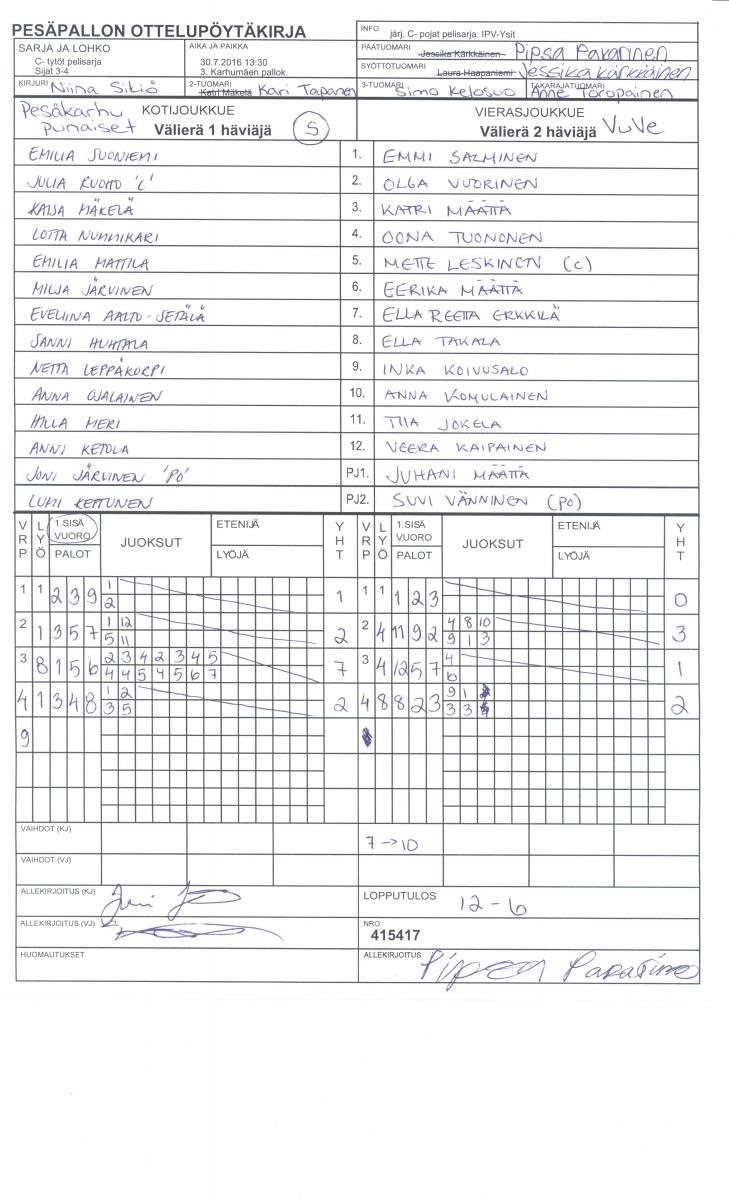 PESÄPALLON OTTELUPÖYTÄKIRJA
INFO järj. C- pojat pelisarja: IPV-Ysit
SARJA JA LOHKO
C- tytöt pelisarja
Sijat 3-4
AIKA JA PAIKKA
30.7.2016 13:30
3. Karhumäen pallok.
PÄÄTUOMARI Jessika Kärkkäinen Pipsa Pakarinen
SYÖTTÖTUOMARI Laura Haapaniemi Jessika Kärkkäinen
KIRJURI Niina Sikiö
2-TUOMARI Katri Mäkelä Kari Tapanen
3-TUOMARI Simo Kelosuo
TAKARAJATUOMARI Anne Toropainen
Pesäkarhu punaiset
KOTIJOUKKUE
Välierä 1 häviäjä S
VIERASJOUKKUE
Välierä 2 häviäjä VuVe
EMILIA SUONIEMI 1. EMMI SALMINEN
JULIA RUOHO 'C' 2. OLGA VUORINEN
KAISA MÄKELÄ 3. KATRI MÄÄTTÄ
LOTTA NUMMIKARI 4. OONA TUONONEN
EMILIA MATTILA 5. METTE LESKINEN (C)
MILJA JÄRVINEN 6. EERIKA MÄÄTTÄ
EVELIINA AALTO-SETÄLÄ 7. ELLA REETTA ERKKILÄ
SANNI HUHTALA 8. ELLA TAKALA
NETTA LEPPÄKORPI 9. INKA KOIVUSALO
ANNA OJALAINEN 10. ANNA KOMULAINEN
HILLA MERI 11. TIIA JOKELA
ANNI KETOLA 12. VEERA KAIPAINEN
JONI JÄRVINEN 'PO' PJ1. JUHANI MÄÄTTÄ
LUMI KETTUNEN PJ2. SUVI VÄNNINEN (PO)
VRP LYÖ 1.SISÄ VUORO PALOT JUOKSUT ETENIJÄ LYÖJÄ YHT VRP LYÖ 1.SISÄ VUORO PALOT JUOKSUT ETENIJÄ LYÖJÄ YHT
1 1 2 3 9 1 1 1 1 1 2 3 0
2
2 1 3 5 7 1 12 2 2 4 11 9 2 4 8 10 3
5 11 9 1 3
3 8 1 5 6 2 3 4 2 3 4 5 7 3 4 12 5 7 4 1
4 4 5 4 5 6 7 6
4 1 3 4 8 1 2 2 4 8 8 2 3 9 1 2
3 5 3 3
9
VAIHDOT (KJ) 7 → 10
VAIHDOT (VJ)
ALLEKIRJOITUS (KJ)
LOPPUTULOS 12-6
ALLEKIRJOITUS (VJ)
NRO
415417
HUOMAUTUKSET
ALLEKIRJOITUS Pipsa Pakarinen